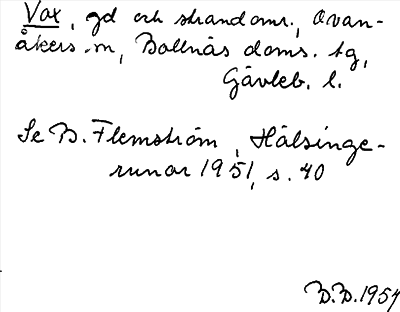 Vox, gd och strandomr., Ovan-
åkers sn, Bollnäs doms. tg,
Gävleb. l.
Se B. Flemström, Hälsinge-
runor 1951, s. 40
B.B. 1954